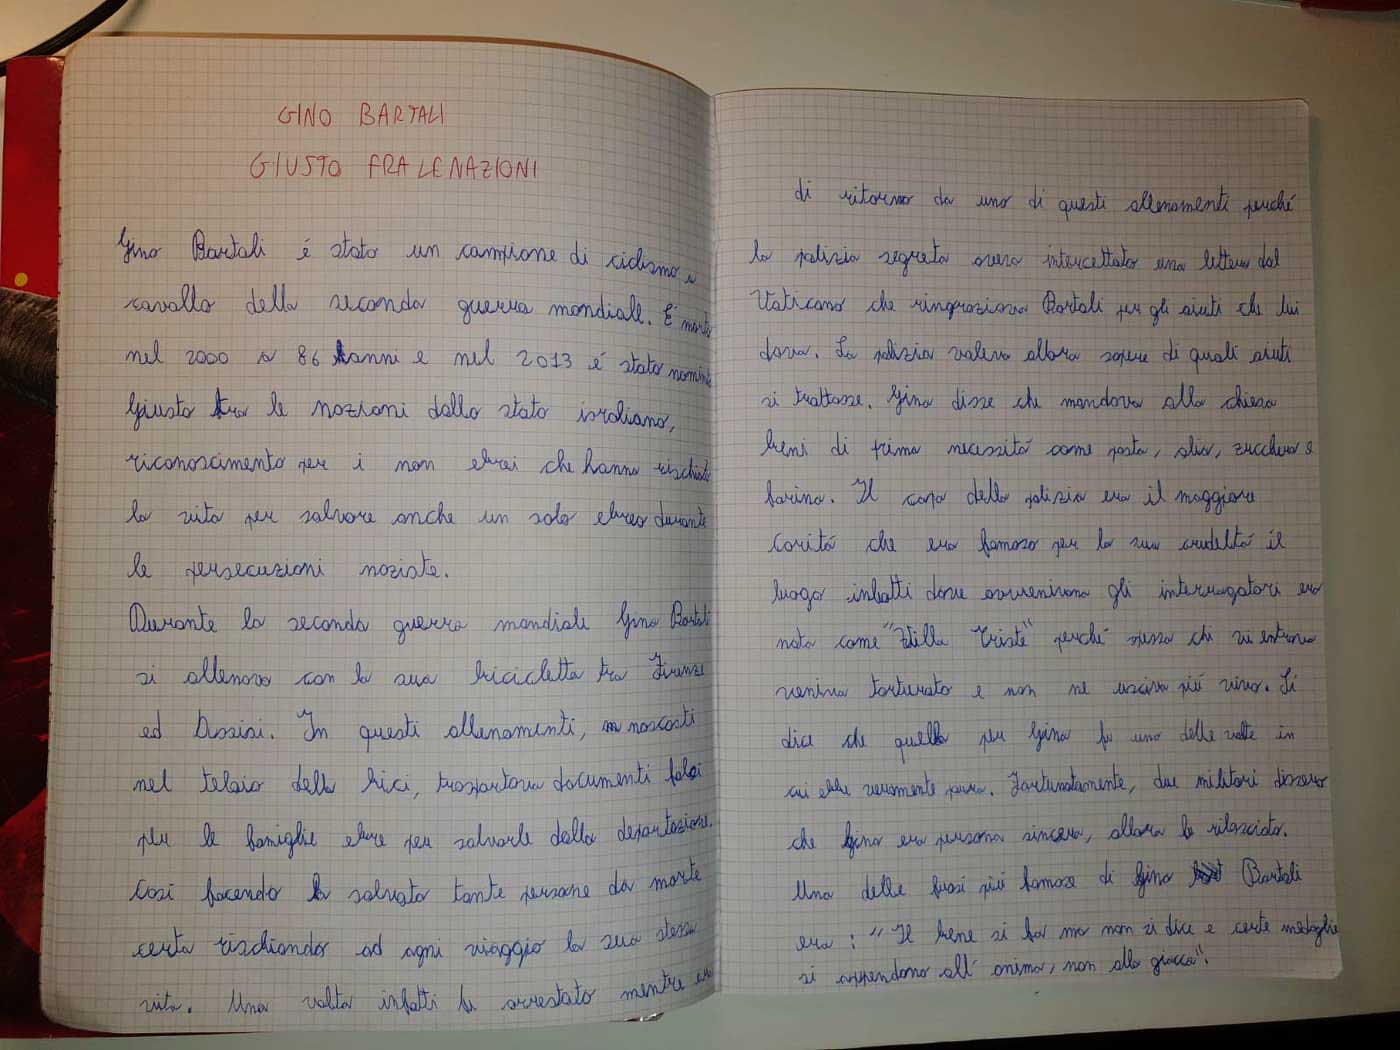 GINO BARTALI
GIUSTO FRA LE NAZIONI
Gino Bartali é stato un campione di ciclismo a
cavallo della seconda guerra mondiale. É morto
nel 2000 a 86 anni e nel 2013 é stato nomin
Giusto tra le nazioni dallo stato isroliano,
riconoscimento per i non ebrei che hanno rischiato
la vita per salvare anche un solo ebreo durante
le persecuzioni naziste.
Durante la seconda guerra mondiale Gino Bartali
si allenava con la sua bicicletta tra Firenze
ed Assisi. In questi allenamenti, nascosti
nel telaio della bici, trasportava documenti falsi
per le famiglie ebree per salvarle dalla deportazione.
Cosí facendo ha salvato tante persone da morte
certa rischiando ad ogni viaggio la sua stessa
vita. Una volta infatti fu arrestato mentre era
di ritorno da uno di questi allenamenti perché
la polizia segreta aveva intercettato una lettera dal
Vaticano che ringraziava Bartali per gli aiuti che lui
dava. La polizia voleva allora sapere di quali aiuti
si trattasse. Gino disse che mandava alla chiesa
beni di prima necessitá come pasta, olio, zucchero e
farina. Il capo della polizia era il maggiore
Caritá che era famoso per la sua crudeltá il
luogo infatti dove avvenivano gli interrogatori era
nato come "Villa Triste" perché spesso chi vi entrava
veniva torturato e non ne usciva piú vivo. Si
dice che quella per Gino fu una delle volte in
cui ebbe veramente paura. Fortunatamente, due militari dissero
che Gino era persona sincera, allora fu rilasciato.
Una delle frasi piú famose di Gino Bartali
era: "Il bene si fa ma non si dice e certe medaglie
si appendono all'anima, non alla giacca".